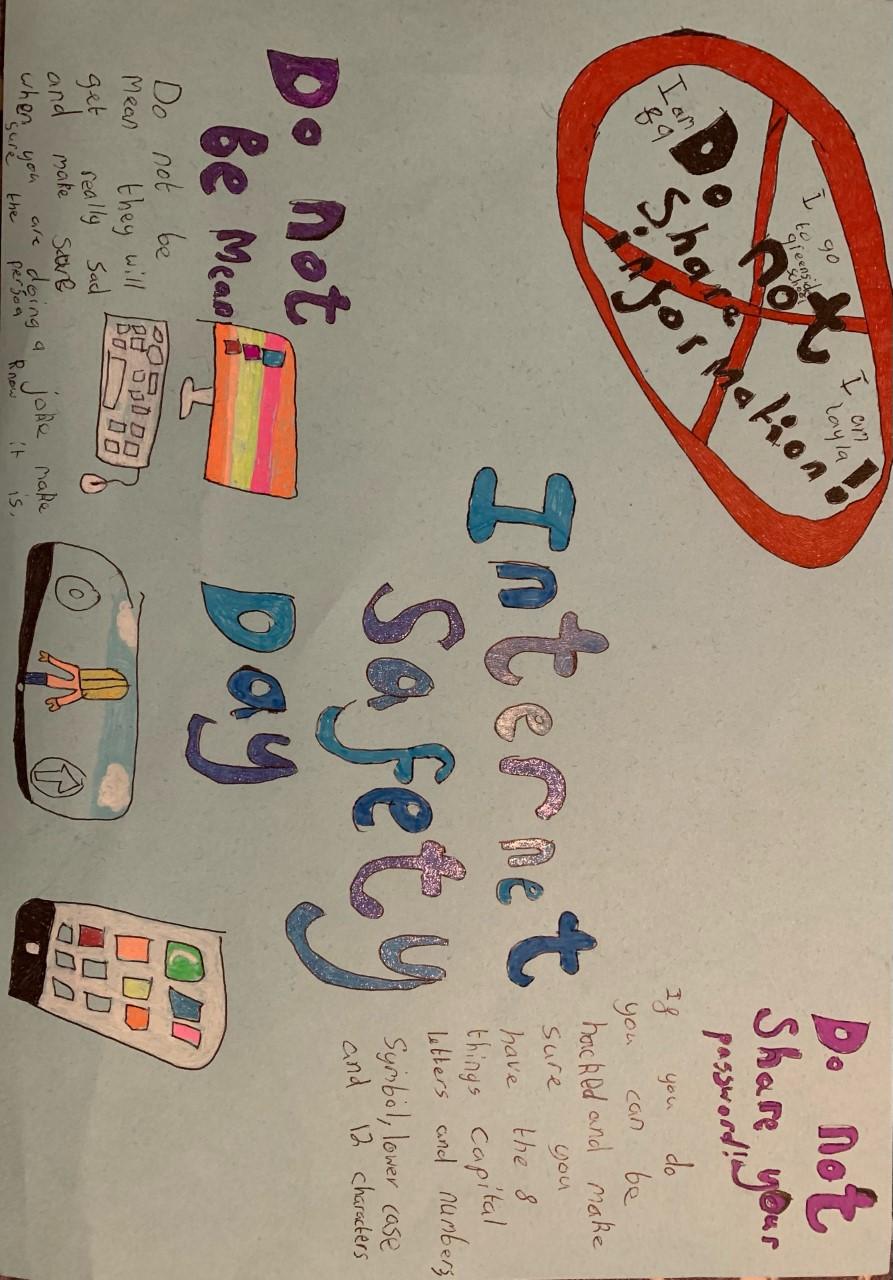 Do not
Share
information!
I am
89
I go
to
greenside
school
I am
Layla
Internet
Safety
Day
Do not
Share your
password!
If you do
you can be
hacked and make
sure you
have the 8
things capital
letters and numbers
Symbol, lower case
and 12 characters
Do not
Be Mean
Do not be
mean they will
get really sad
and make sure
when you are doing a joke make
sure the person know it is,